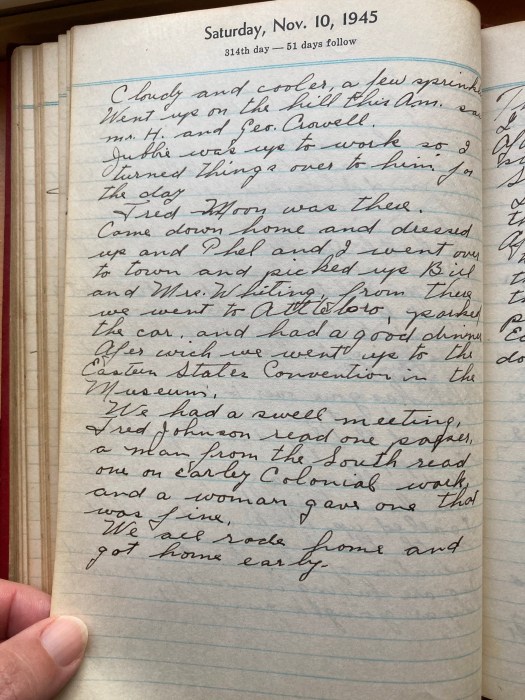 Saturday, Nov. 10, 1945
314th day — 51 days follow
Cloudy and cooler, a few sprinkl
Went up on the hill this Am. sa
mr. H. and Geo. Crowell.
was up to work so I
turned things over to him for
the day
Fred Moon was there.
Came down home and dressed
up and Phel and I went over
to town and picked up Bill
and Mrs. Whiting, from there
we went to Attleboro, parked
the car. and had a good dinner
After wich we went up to the
Eastern States Convention in the
Museum.
We had a swell meeting,
Fred Johnson read one paper,
a man from the South read
one on earley Colonial work,
and a woman gave one that
was fine.
We all rode home and
got home early.